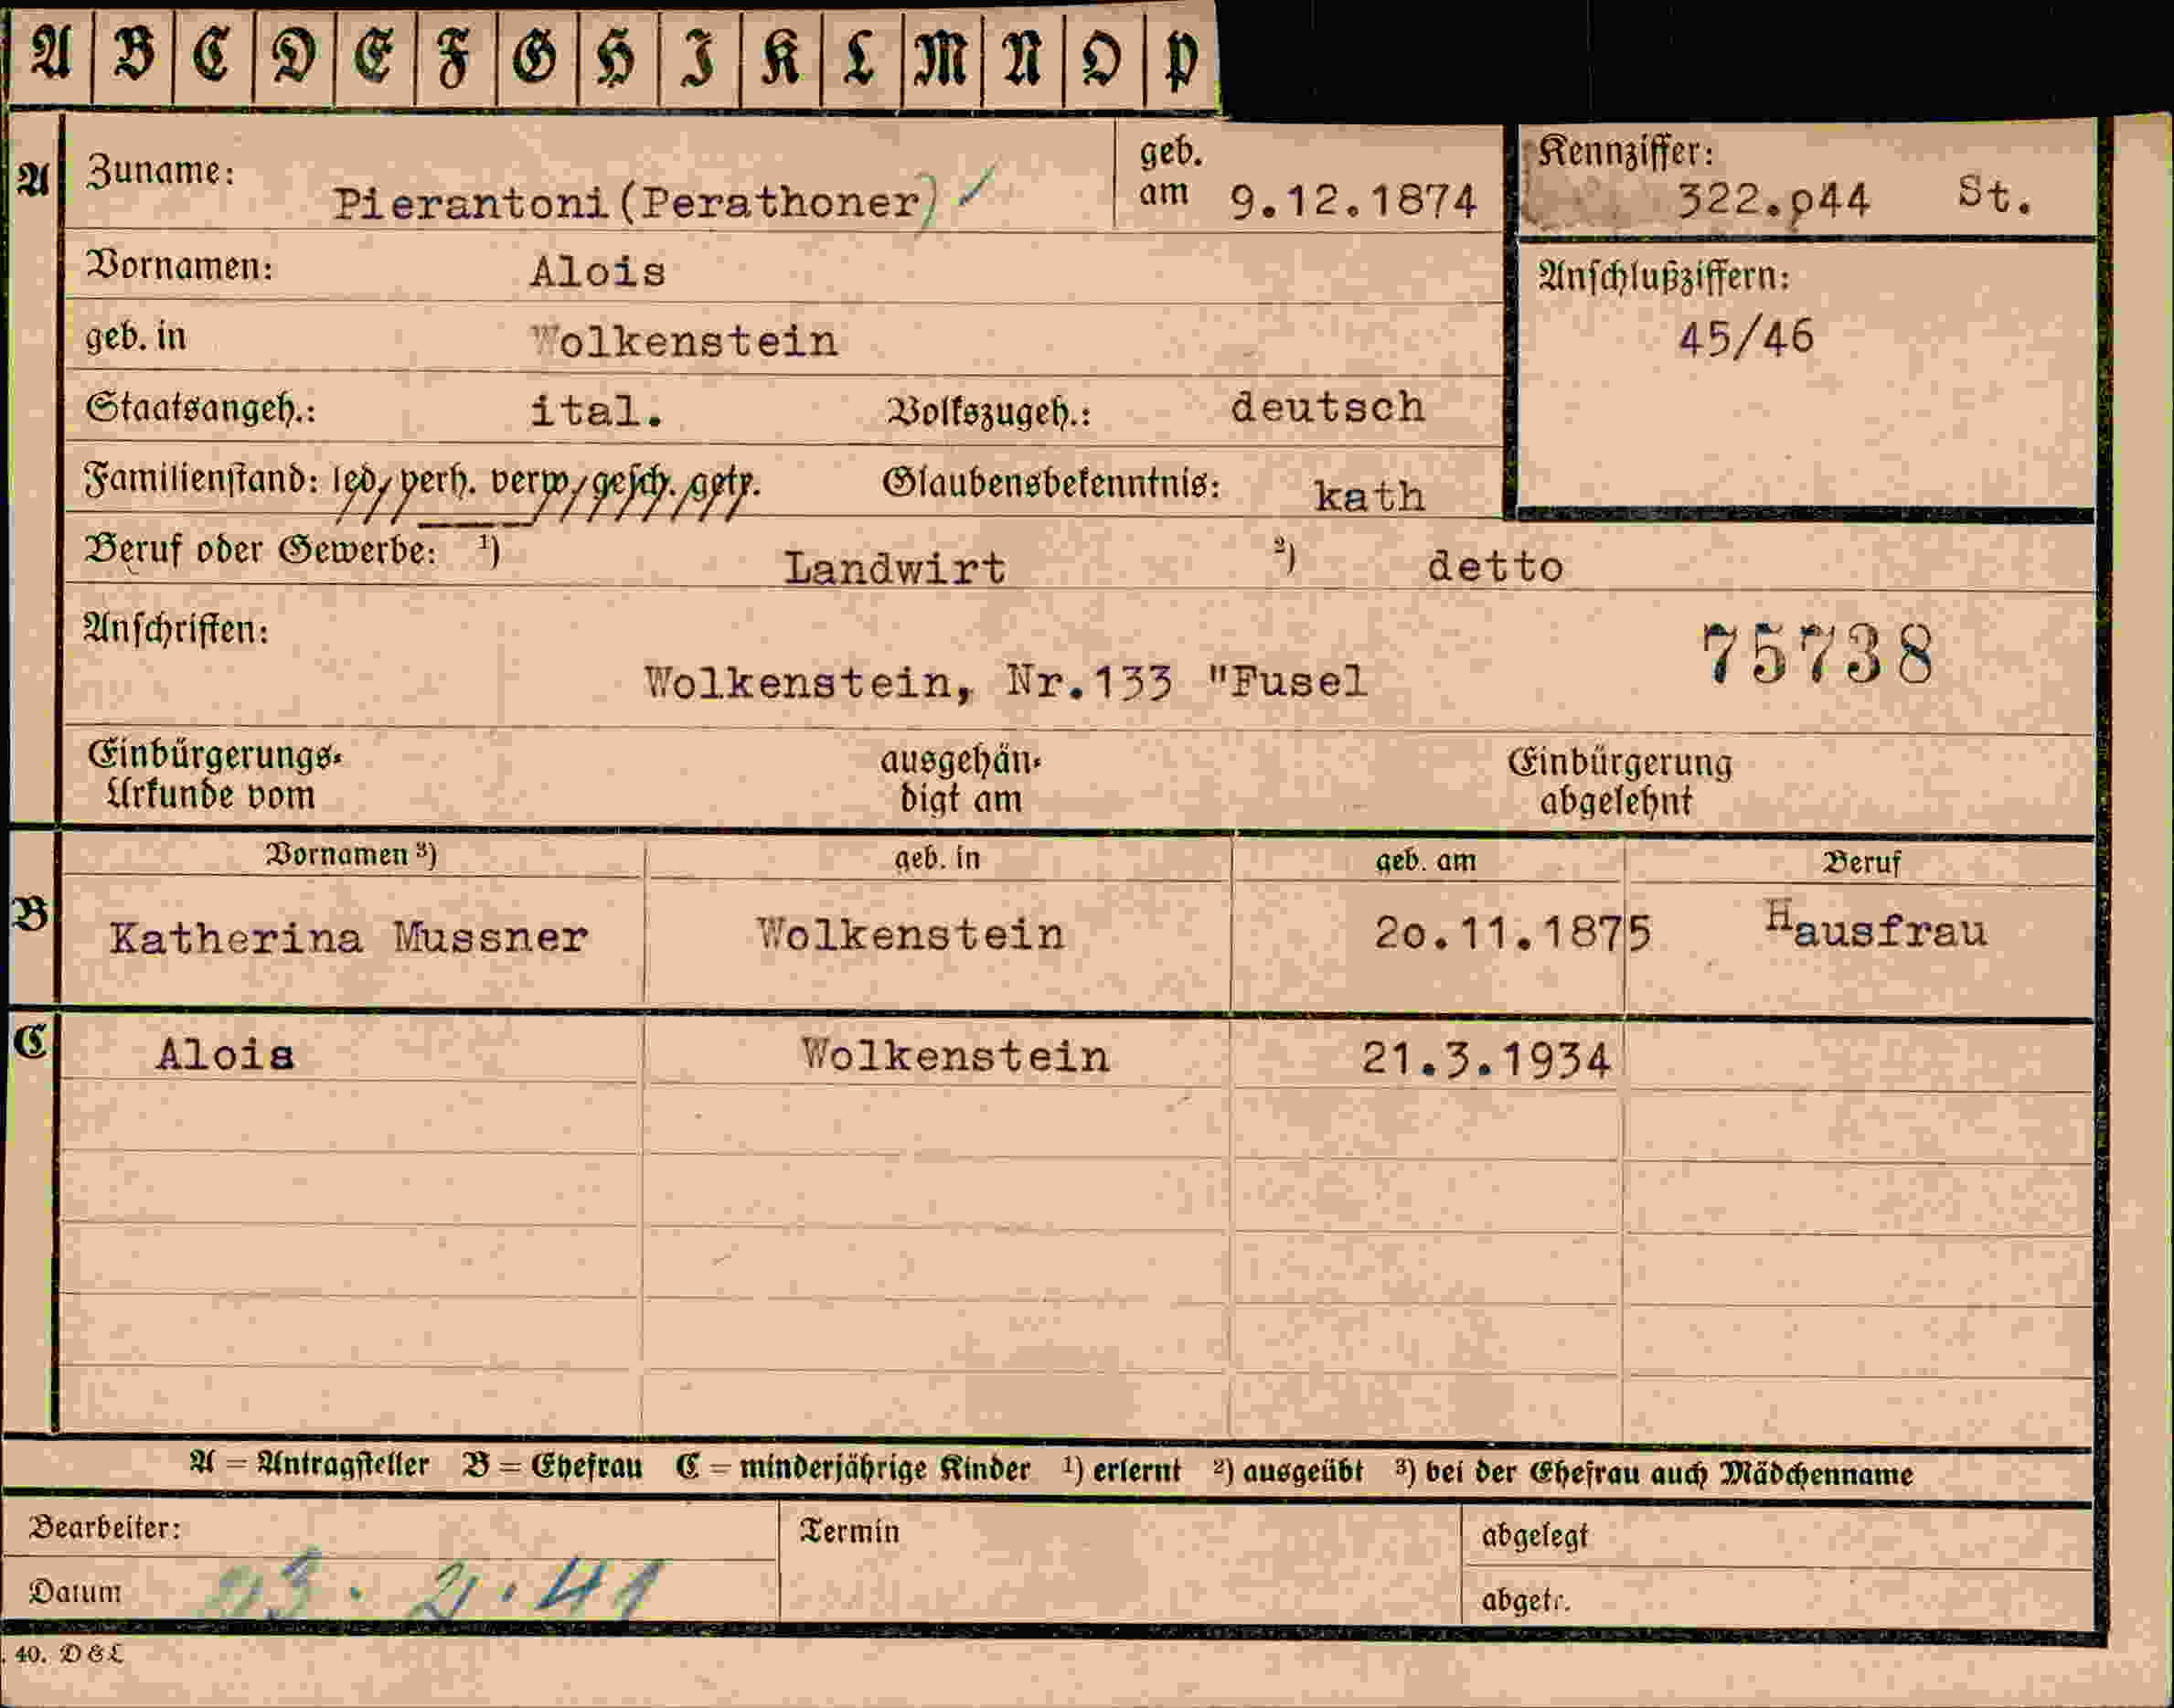 A B C D E F G H I K L M N O P
A Zuname: Pierantoni(Perathoner) geb. am 9.12.1874 Kennziffer: 322.o44 St.
Vornamen: Alois Anschlußziffern:
geb. in Wolkenstein 45/46
Staatsangeh.: ital. Volkszugeh.: deutsch
Familienstand: led, verh. verw, gesch. getr. Glaubensbekenntnis: kath
Beruf oder Gewerbe: 1) Landwirt 2) detto
Anschriften: 75738
Wolkenstein, Nr.133 "Fusel
Einbürgerungs- ausgehän- Einbürgerung
Urkunde vom digt am abgelehnt
Vornamen 3) geb. in geb. am Beruf
B Katherina Mussner Wolkenstein 2o.11.1875 Hausfrau
C Alois Wolkenstein 21.3.1934
A = Antragsteller B = Ehefrau C = minderjährige Kinder 1) erlernt 2) ausgeübt 3) bei der Ehefrau auch Mädchenname
Bearbeiter: Termin abgelegt
Datum abgetr.
40. D&L